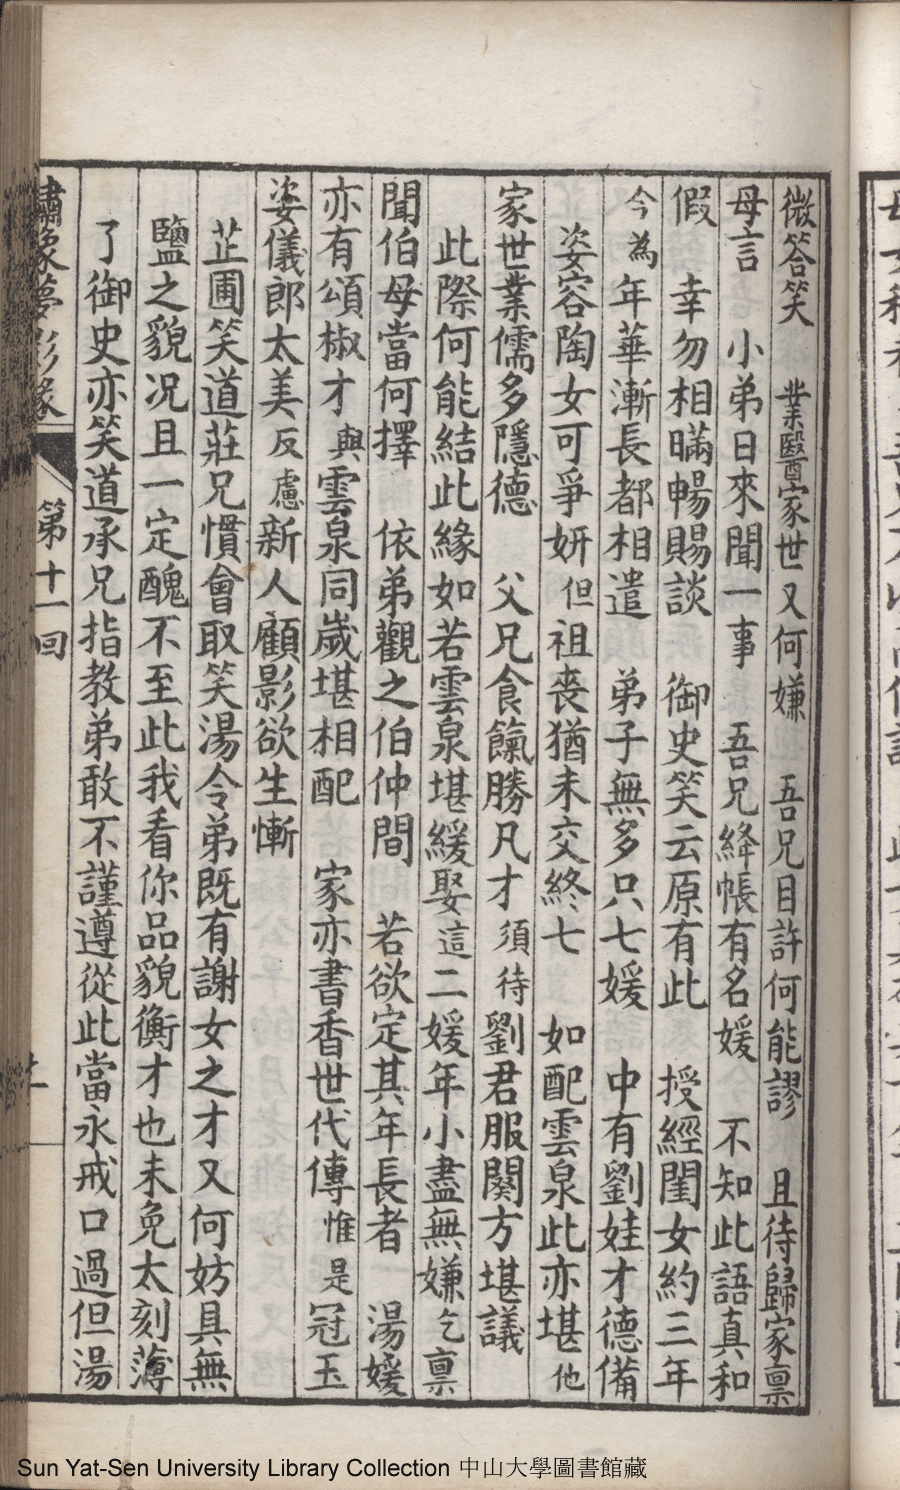 微答笑　業醫家世又何嫌　吾兄目許何能謬　且待歸家禀
母言　小弟日來聞一事　吾兄絳帳有名媛　不知此語真和
假　幸勿相瞞暢賜談　御史笑云原有此　授經閨女約三年
今為年華漸長都相遣　弟子無多只七媛　中有劉娃才德備
姿容陶女可爭妍但祖喪猶未交終七　如配雲泉此亦堪他
家世業儒多隱德　父兄食餼勝凡才須待劉君服闋方堪議
此際何能結此緣如若雲泉堪緩娶這二媛年小盡無嫌乞禀
聞伯母當何擇　依弟觀之伯仲間　若欲定其年長者　湯媛
亦有頌椒才與雲泉同歲堪相配　家亦書香世代傳惟是冠玉
姿儀郎太美反慮新人顧影欲生慚
芷圃笑道莊兄慣會取笑湯令弟既有謝女之才又何妨具無
鹽之貌况且一定醜不至此我看你品貌衡才也未免太刻薄
了御史亦笑道承兄指教弟敢不謹遵從此當永戒口過但湯
繡像夢影緣
第十一回
Sun Yat-Sen University Library Collection 中山大學圖書館藏